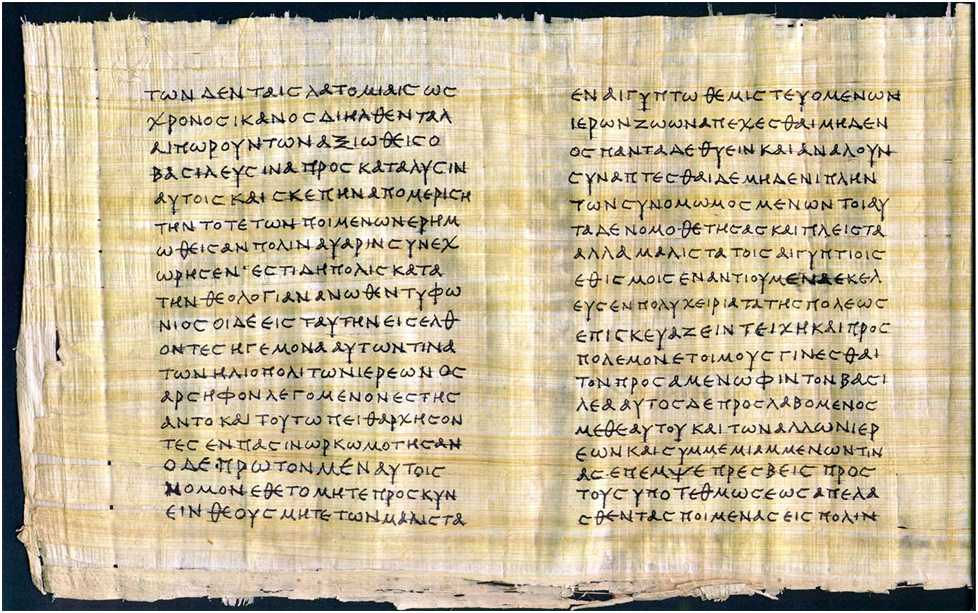 ΤΩΝΔΕΝΤΑΙϹΛΑΤΟΜΙΑΙϹΩϹ
ΧΡΟΝΟϹΙΚΑΝΟϹΔΙΗΛΘΕΝΤΑΛ
ΑΙΠΩΡΟΥΝΤΩΝΑΞΙΩΘΕΙϹΟ
ΒΑϹΙΛΕΥϹΙΝΑΠΡΟϹΚΑΤΑΛΥϹΙΝ
ΑΥΤΟΙϹΚΑΙϹΚΕΠΗΝΑΠΟΜΕΡΙϹΗ
ΤΗΝΤΟΤΕΤΩΝΠΟΙΜΕΝΩΝΕΡΗΜ
ΩΘΕΙϹΑΝΠΟΛΙΝΑΥΑΡΙΝϹΥΝΕΧ
ΩΡΗϹΕΝ·ΕϹΤΙΔΗΠΟΛΙϹΚΑΤΑ
ΤΗΝΘΕΟΛΟΓΙΑΝΑΝΩΘΕΝΤΥΦΩ
ΝΙΟϹΟΙΔΕΕΙϹΤΑΥΤΗΝΕΙϹΕΛΘ
ΟΝΤΕϹΗΓΕΜΟΝΑΑΥΤΩΝΤΙΝΑ
ΤΩΝΗΛΙΟΠΟΛΙΤΩΝΙΕΡΕΩΝΟϹ
ΑΡϹΗΦΟΝΛΕΓΟΜΕΝΟΝΕϹΤΗϹ
ΑΝΤΟΚΑΙΤΟΥΤΩΠΕΙΘΑΡΧΗϹΟΝ
ΤΕϹΕΝΠΑϹΙΝΩΡΚΩΜΟΤΗϹΑΝ
ΟΔΕΠΡΩΤΟΝΜΕΝΑΥΤΟΙϹ
ΝΟΜΟΝΕΘΕΤΟΜΗΤΕΠΡΟϹΚΥΝ
ΕΙΝΘΕΟΥϹΜΗΤΕΤΩΝΜΑΛΙϹΤΑ
ΕΝΑΙΓΥΠΤΩΘΕΜΙϹΤΕΥΟΜΕΝΩΝ
ΙΕΡΩΝΖΩΩΝΑΠΕΧΕϹΘΑΙΜΗΔΕΝ
ΟϹΠΑΝΤΑΔΕΘΥΕΙΝΚΑΙΑΝΑΛΟΥΝ
ϹΥΝΑΠΤΕϹΘΑΙΔΕΜΗΔΕΝΙΠΛΗΝ
ΤΩΝϹΥΝΟΜΩΜΟϹΜΕΝΩΝΤΟΙΑΥ
ΤΑΔΕΝΟΜΟΘΕΤΗϹΑϹΚΑΙΠΛΕΙϹΤΑ
ΑΛΛΑΜΑΛΙϹΤΑΤΟΙϹΑΙΓΥΠΤΙΟΙϹ
ΕΘΙϹΜΟΙϹΕΝΑΝΤΙΟΥΜΕΝΑΕΚΕΛ
ΕΥϹΕΝΠΟΛΥΧΕΙΡΙΑΤΑΤΗϹΠΟΛΕΩϹ
ΕΠΙϹΚΕΥΑΖΕΙΝΤΕΙΧΗΚΑΙΠΡΟϹ
ΠΟΛΕΜΟΝΕΤΟΙΜΟΥϹΓΙΝΕϹΘΑΙ
ΤΟΝΠΡΟϹΑΜΕΝΩΦΙΝΤΟΝΒΑϹΙ
ΛΕΑΑΥΤΟϹΔΕΠΡΟϹΛΑΒΟΜΕΝΟϹ
ΜΕΘΕΑΥΤΟΥΚΑΙΤΩΝΑΛΛΩΝΙΕΡ
ΕΩΝΚΑΙϹΥΜΜΕΜΙΑΜΜΕΝΩΝΤΙΝ
ΑϹ·ΕΠΕΜΨΕΠΡΕϹΒΕΙϹΠΡΟϹ
ΤΟΥϹΥΠΟΤΕΘΜΩϹΕΩϹΑΠΕΛΑ
ϹΘΕΝΤΑϹΠΟΙΜΕΝΑϹΕΙϹΠΟΛΙΝ